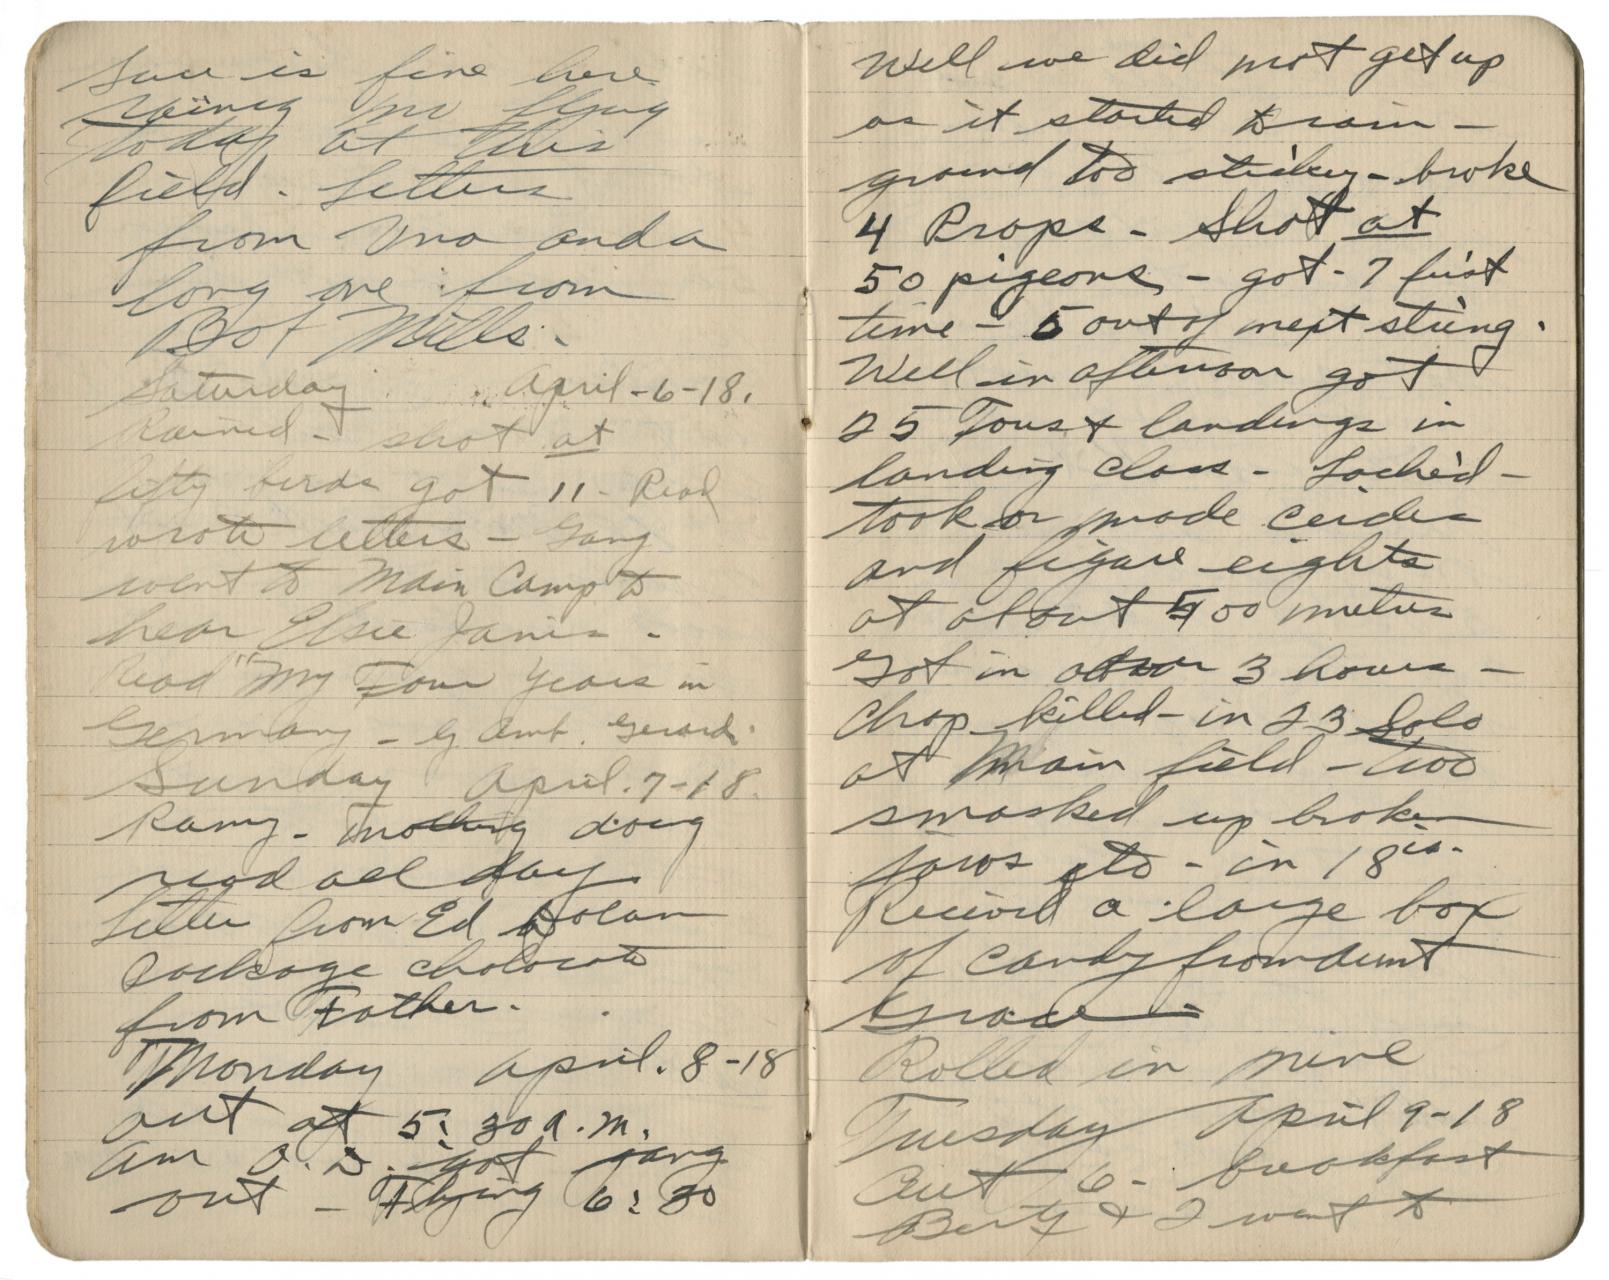 is fine here
no flying
today at this
field - Letters
from Una and a
long one from
Bot Mills.
Saturday April-6-18.
Rained - shot at
fifty birds got 11 - Read
wrote letters - Gang
went to Main Camp to
hear Elsie Janis -
Read "My Four Years in
Germany - by Amb. Gerard.
Sunday April.7-18.
Rainy - nothing doing
read all day
Letter from Ed Dolan
Package chocolate
from Father.
Monday April. 8-18
out at 5:30 a.m.
am O.D. got gang
out - Flying 6:30
Well we did not get up
as it started to rain -
ground too sticky - broke
4 Props - Shot at
50 pigeons - got - 7 first
time - 5 out of next string.
Well in afternoon got
25 Tours & landings in
landing class - Soche'd -
took or made circles
and figure eights
at about 500 meters
Got in 3 hours -
Chap killed - in 23 Solo
at Main field - two
smashed up broken
jaws etc - in 18
Received a large box
of candy from Aunt
Grace -
Rolled in nine
Tuesday April 9-18
Out 6 - breakfast
Berty & I went to